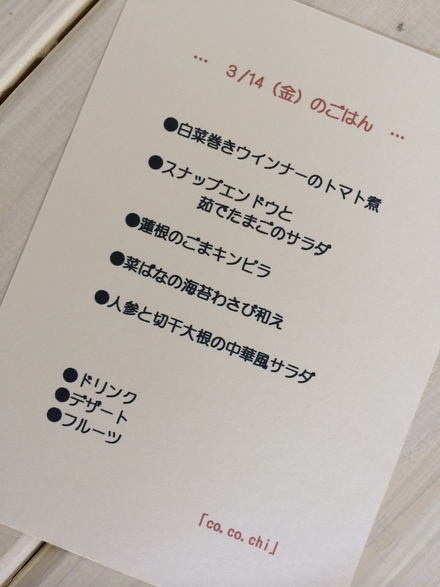 … 3/14（金）のごはん …
●白菜巻きウインナーのトマト煮
●スナップエンドウと
茹でたまごのサラダ
●蓮根のごまキンピラ
●菜ばなの海苔わさび和え
●人参と切干大根の中華風サラダ
●ドリンク
●デザート
●フルーツ
「co.co.chi」